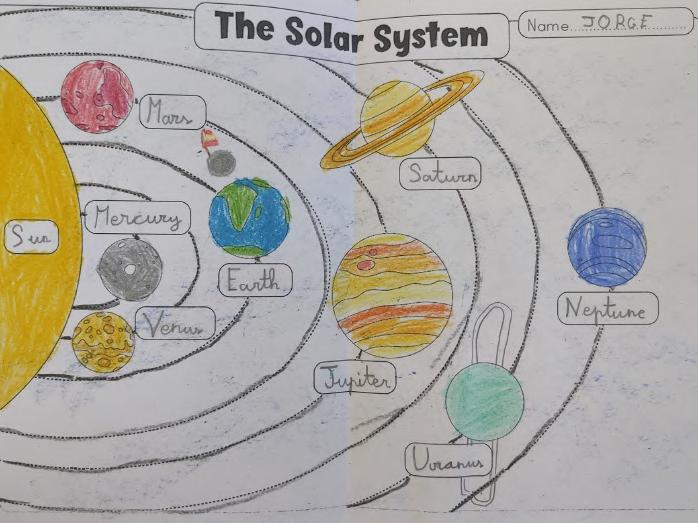 The Solar System
Name JORGE
Mars
Saturn
Mercury
Sun
Earth
Neptune
Venus
Jupiter
Uranus